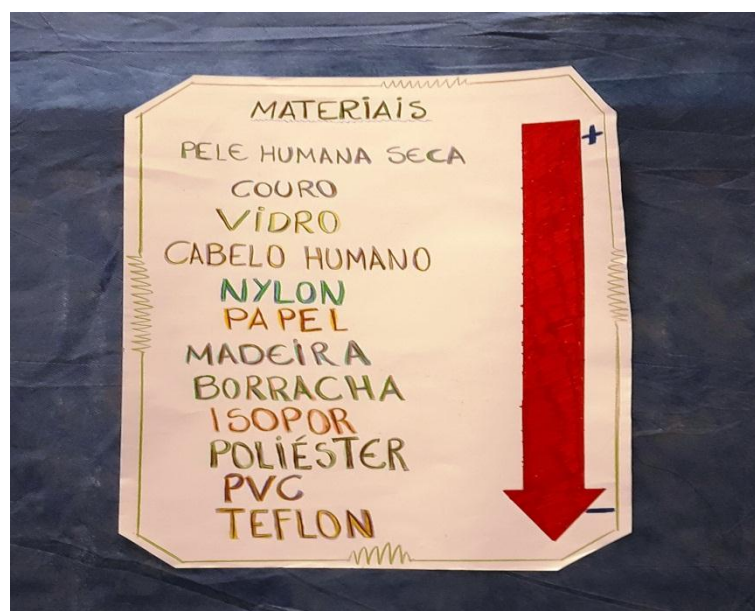 MATERIAIS
+
PELE HUMANA SECA
COURO
VIDRO
CABELO HUMANO
NYLON
PAPEL
MADEIRA
BORRACHA
ISOPOR
POLIÉSTER
PVC
TEFLON
-